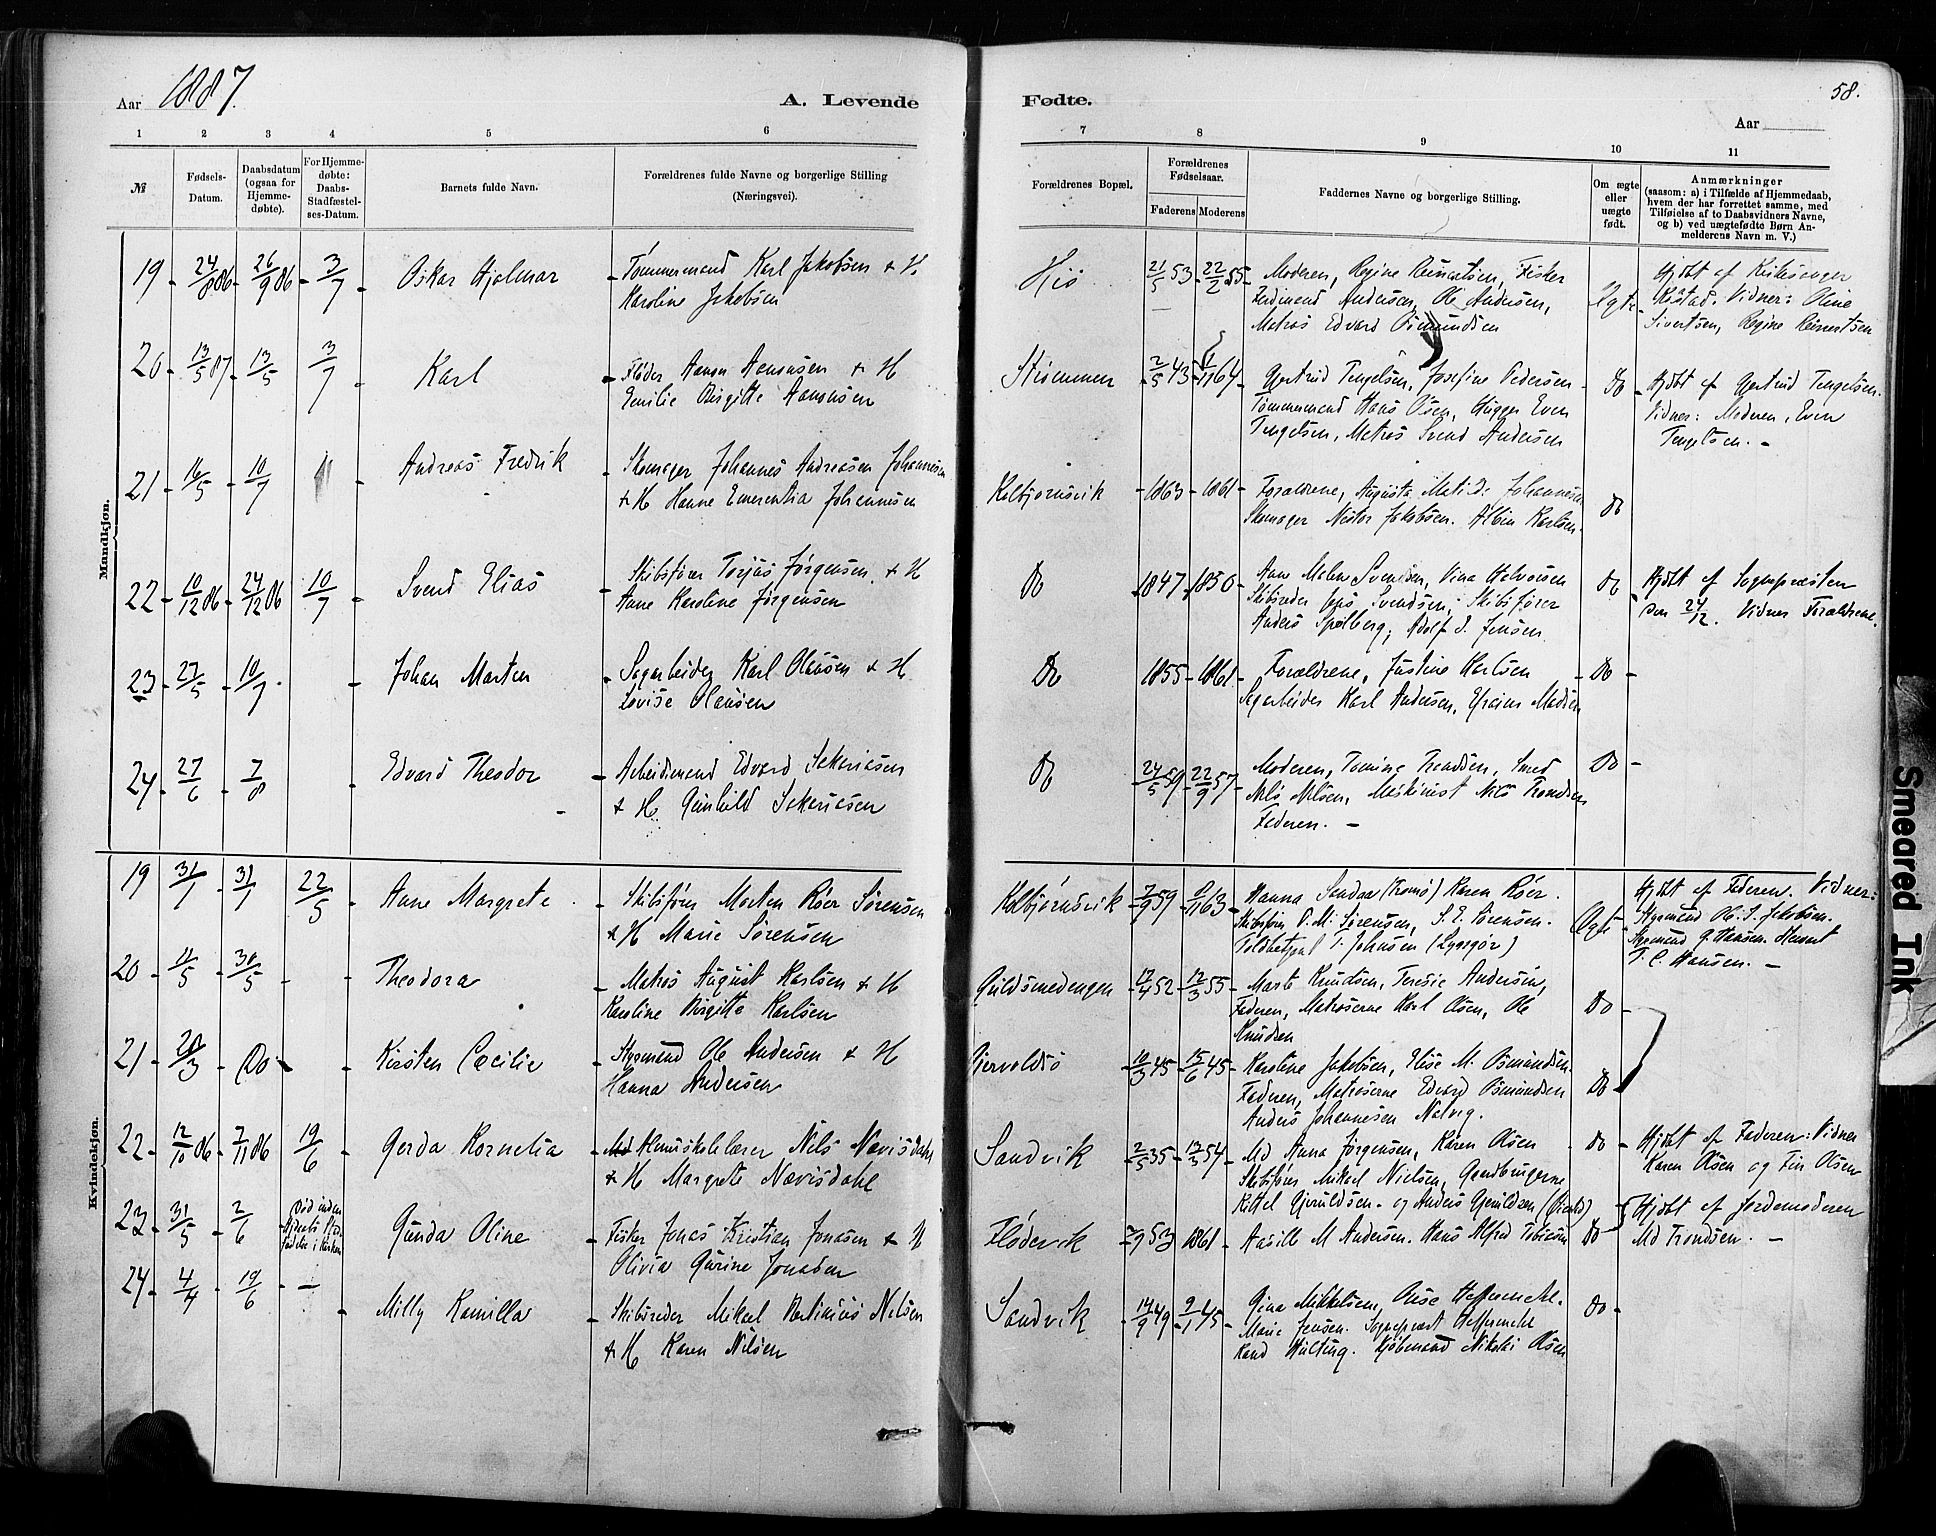 Aar 1887.
A. Levende
1 2 3 4 5 6
№
Fødsels-
Datum.
Daabsdatum
(ogsaa for
Hjemme-
døbte).
For Hjemme-
døbte:
Daabs-
Stadfæstel-
ses-Datum.
Barnets fulde Navn.
Forældrenes fulde Navne og borgerlige Stilling
(Næringsvei).
Mandkjøn.
19 24/8 86 26/9 86 3/7 Oskar Hjalmar Tømmermand Karl Jakobsen & H.
Karoline Jakobsen
20 13/5 87 13/5 3/7 Karl Fløder Aanon Aanonsen & H
Emilie Birgitte Aanonsen
21 16/5 10/7 Andreas Fredrik Skomager Johannes Andreasen Johannesen
& H Hanne Emerentia Johannesen
22 10/12 86 24/12 86 10/7 Svend Elias Skibsfører Torjus Jørgensen & H
Anne Karoline Jørgensen
23 27/5 10/7 Johan Martin Sagarbeider Karl Olausen & H
Lovise Olausen
24 27/6 7/8 Edvard Theodor Arbeidsmand Edvard Sakariasen
& H. Gunhild Sakariasen
Kvindekjøn.
19 31/1 31/1 22/5 Anne Margrete Skibsfører Morten Røer Sørensen
& H Marie Sørensen
20 11/5 30/5 Theodora Matros August Karlsen & H
Karoline Birgitte Karlsen
21 20/3 Do Kirsten Cæcilie Styrmand Ole Andersen & H
Hanna Andersen
22 12/10 86 7/11 86 19/6 Gerda Kornelia Almueskolelærer Nils Nævisdahl
& H Margrete Nævisdahl
23 31/5 2/6 Død inden
Gunda Oline Fisker Jonas Kristian Jonasen & H
Olivia Gurine Jonasen
24 4/4 19/6 — Milly Kamilla Skibsreder Mikael Martinius Nilsen
& H Karen Nilsen
Fødte.
58.
Aar
7 8 9 10 11
Forældrenes Bopæl.
Forældrenes
Fødselsaar.
Faderens Moderens
Faddernes Navne og borgerlige Stilling.
Om ægte
eller
uægte
født.
Anmærkninger
(saasom: a) i Tilfælde af Hjemmedaab,
hvem der har forrettet samme, med
Tilføielse af to Daabsvidners Navne,
og b) ved uægtefødte Børn An-
melderens Navn m. V.)
Hiø 21/5 53 22/2 55 Moderen, Regine Reinertsen, Fisker
Ferdinand Andersen, Ole Andersen,
Matros Edvard Osmundsen
Ægte
Hjdbt af Kirkesanger
Vidner: Oline
Sivertsen, Regine Reinertsen
Strømmen 2/5 43 1/11 64 Gjertrud Tengelsen, Josefine Pedersen
Tømmermand Hans Olsen, Hugger Even
Tengelsen, Matros Svend Andersen
Do
Hjdbt af Gjertrud Tengelsen.
Vidner: Moderen, Even
Tengelsen. —
Kolbjørnsvik 1863 1861 Forældrene, Augusta Matilde Johannesen
Skomager Nestor Jakobsen. Albin Karlsen.
Do
Do 1847 1850 Anne Malene Svendsen, Vina Halvorsen
Skibsreder Jens Svendsen, Skibsfører
Anders Spilberg, Adolf J. Jensen.
Do
Hjdbt af Sognepræsten
den 24/12. Vidner Forældrene.
Do 1855 1861 Forældrene, Justine Karlsen
Sagarbeider Karl Andersen, Efraim Madsen
Do
Do 24/5 59 22/9 57 Moderen, Tomine Trondsen, Smed
Nils Nilsen, Maskinist Nils Trondsen
Faderen. —
Do
Kolbjørnsvik 7/9 59 63 Hanna Sandaa (Tromø) Karen Røer.
Skibsfører O. M. Sørensen, S. E. Sørensen.
Toldbetjent T. Johnsen (Lyngør)
Ægte
Hjdbt af Faderen. Vidner:
Styrmand Ole S. Jakobsen.
Styrmand G. Hansen.
T. C. Hansen. —
Guldsmedengen 17/4 52 12/3 55 Marte Knudsen, Teresie Andersen,
Faderen, Matroserne Karl Olsen, Ole
Knudsen
Do
Gjervoldsø 10/3 45 15/6 45 Karoline Jakobsen, Elise M. Osmundsen.
Faderen, Matroserne Edvard Osmundsen
Anders Johannesen Nalvig.
Do
Sandvik 2/5 35 13/3 54 Md Anna Jørgensen, Karen Olsen
Skibsfører Mikael Nielsen, Gaardbrugerne
Kittel Gjeruldsen. og Anders Gjeruldsen
Do
Hjdbt af Faderen: Vidner
Karen Olsen og Fin Olsen
Flødevik 7/9 53 1861 Aasille M Andersen. Hans Alfred Tobiasen
Do
Hjdbt af Jordemoderen
Md Trondsen. —
Sandvik 14/9 49 9/1 45 Gina Mikkelsen, Heffermehl.
Marie Jensen. Sognepræst Heffermehl
Kand Hulting. Kjøbmand Nikolai Olsen
Do
Smeared Ink